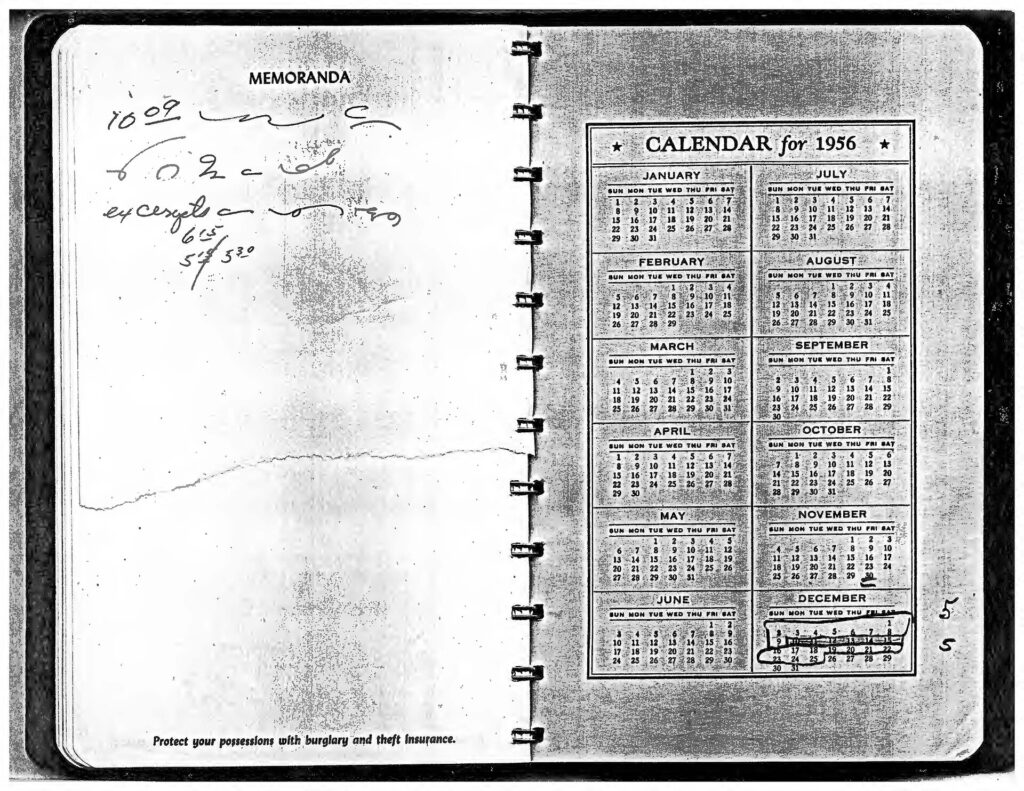 MEMORANDA
10 09
excerpts
6 15
5 30
Protect your possessions with burglary and theft insurance.
CALENDAR for 1956
JANUARY
SUN MON TUE WED THU FRI SAT
1 2 3 4 5 6 7
8 9 10 11 12 13 14
15 16 17 18 19 20 21
22 23 24 25 26 27 28
29 30 31
JULY
SUN MON TUE WED THU FRI SAT
1 2 3 4 5 6 7
8 9 10 11 12 13 14
15 16 17 18 19 20 21
22 23 24 25 26 27 28
29 30 31
FEBRUARY
SUN MON TUE WED THU FRI SAT
1 2 3 4
5 6 7 8 9 10 11
12 13 14 15 16 17 18
19 20 21 22 23 24 25
26 27 28 29
AUGUST
SUN MON TUE WED THU FRI SAT
1 2 3 4
5 6 7 8 9 10 11
12 13 14 15 16 17 18
19 20 21 22 23 24 25
26 27 28 29 30 31
MARCH
SUN MON TUE WED THU FRI SAT
1 2 3
4 5 6 7 8 9 10
11 12 13 14 15 16 17
18 19 20 21 22 23 24
25 26 27 28 29 30 31
SEPTEMBER
SUN MON TUE WED THU FRI SAT
1
2 3 4 5 6 7 8
9 10 11 12 13 14 15
16 17 18 19 20 21 22
23 24 25 26 27 28 29
30
APRIL
SUN MON TUE WED THU FRI SAT
1 2 3 4 5 6 7
8 9 10 11 12 13 14
15 16 17 18 19 20 21
22 23 24 25 26 27 28
29 30
OCTOBER
SUN MON TUE WED THU FRI SAT
1 2 3 4 5 6
7 8 9 10 11 12 13
14 15 16 17 18 19 20
21 22 23 24 25 26 27
28 29 30 31
MAY
SUN MON TUE WED THU FRI SAT
1 2 3 4 5
6 7 8 9 10 11 12
13 14 15 16 17 18 19
20 21 22 23 24 25 26
27 28 29 30 31
NOVEMBER
SUN MON TUE WED THU FRI SAT
1 2 3
4 5 6 7 8 9 10
11 12 13 14 15 16 17
18 19 20 21 22 23 24
25 26 27 28 29 30
JUNE
SUN MON TUE WED THU FRI SAT
1 2
3 4 5 6 7 8 9
10 11 12 13 14 15 16
17 18 19 20 21 22 23
24 25 26 27 28 29 30
DECEMBER
SUN MON TUE WED THU FRI SAT
1
2 3 4 5 6 7 8
9 10 11 12 13 14 15
16 17 18 19 20 21 22
23 24 25 26 27 28 29
30 31
5
5